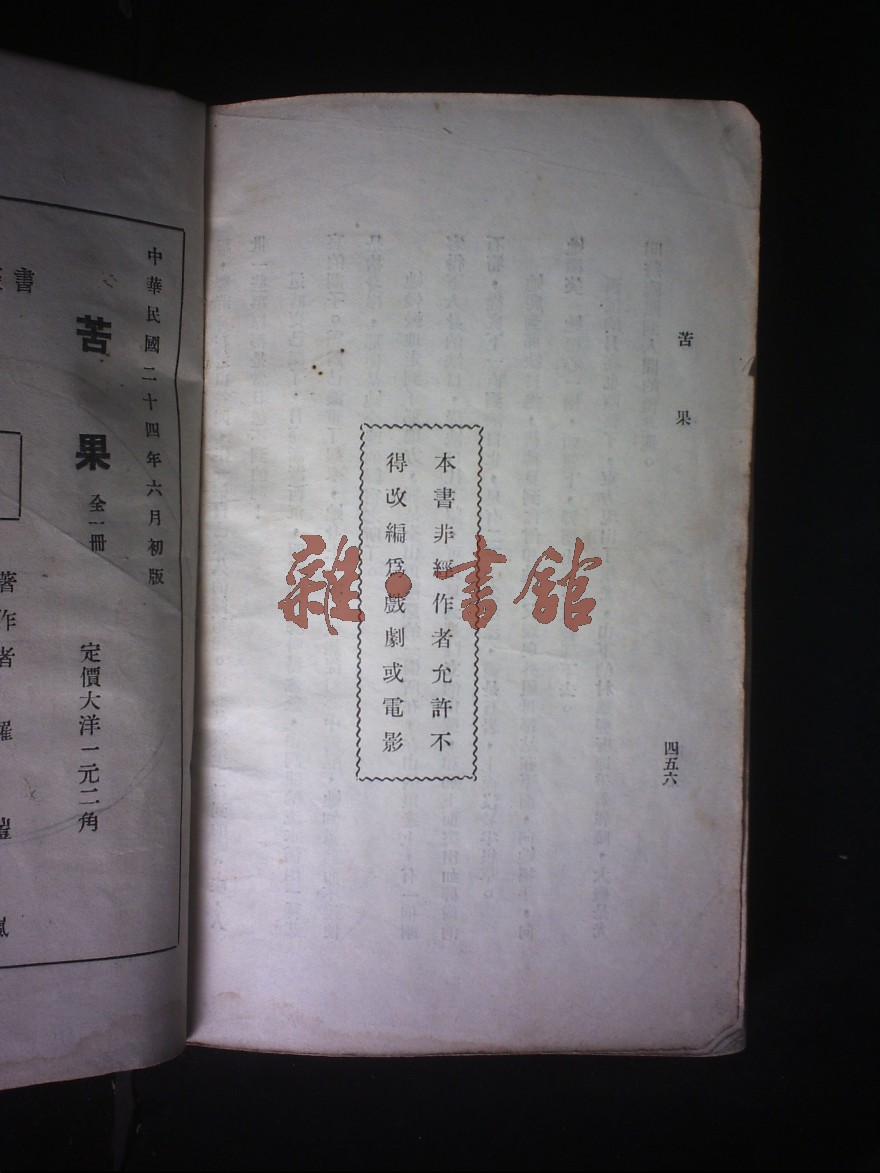 苦果
四五六
本書非經作者允許不
得改編爲戲劇或電影
雜·書館
中華民國二十四年六月初版
苦果
全一冊
定價大洋一元二角
書
著作者 羅